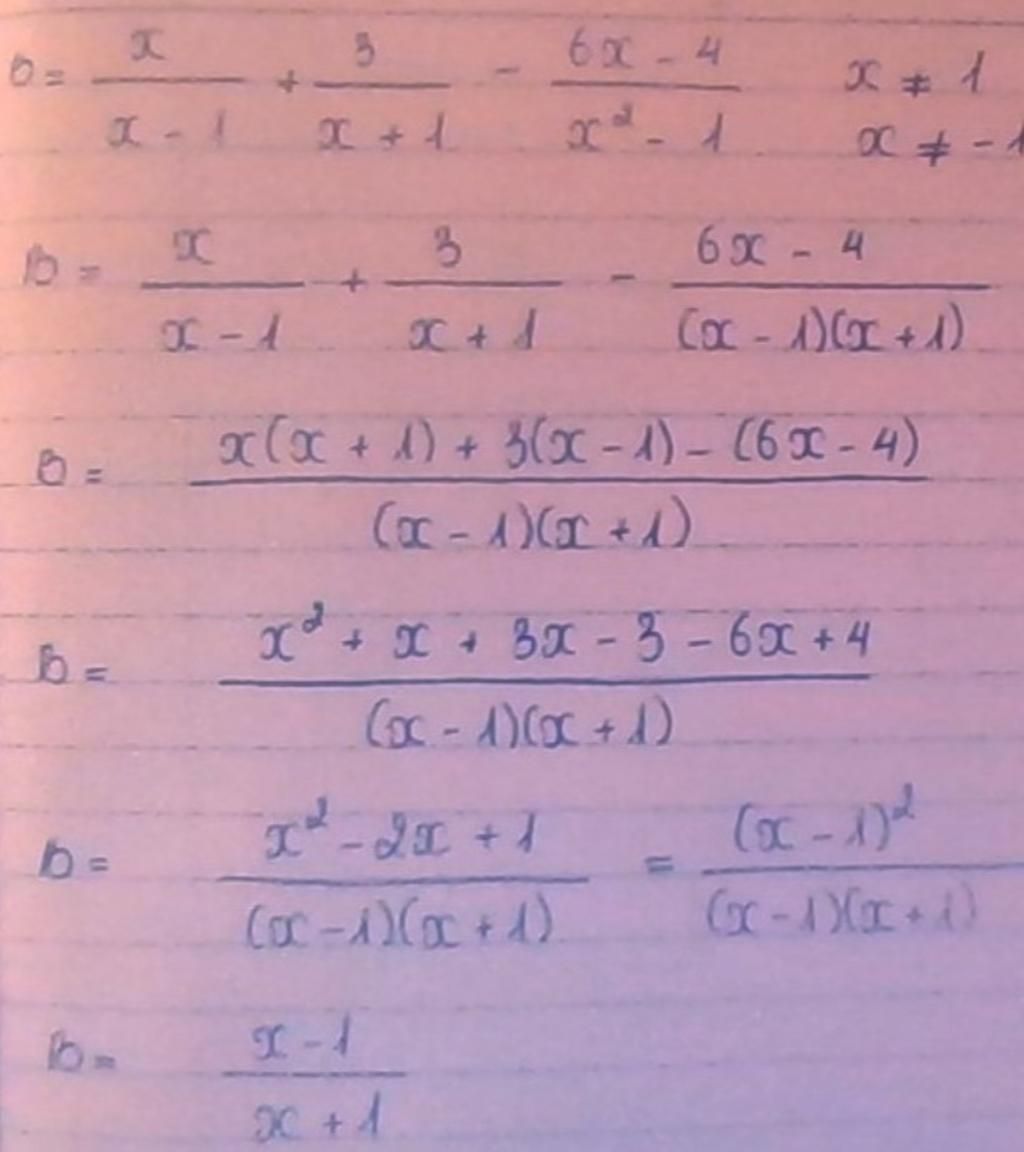 B = x/(x - 1) + 3/(x + 1) - (6x - 4)/(x² - 1) x ≠ 1 x ≠ -1
B = x/(x - 1) + 3/(x + 1) - (6x - 4)/((x - 1)(x + 1))
B = (x(x + 1) + 3(x - 1) - (6x - 4))/((x - 1)(x + 1))
B = (x² + x + 3x - 3 - 6x + 4)/((x - 1)(x + 1))
B = (x² - 2x + 1)/((x - 1)(x + 1)) = (x - 1)²/((x - 1)(x + 1))
B = (x - 1)/(x + 1)